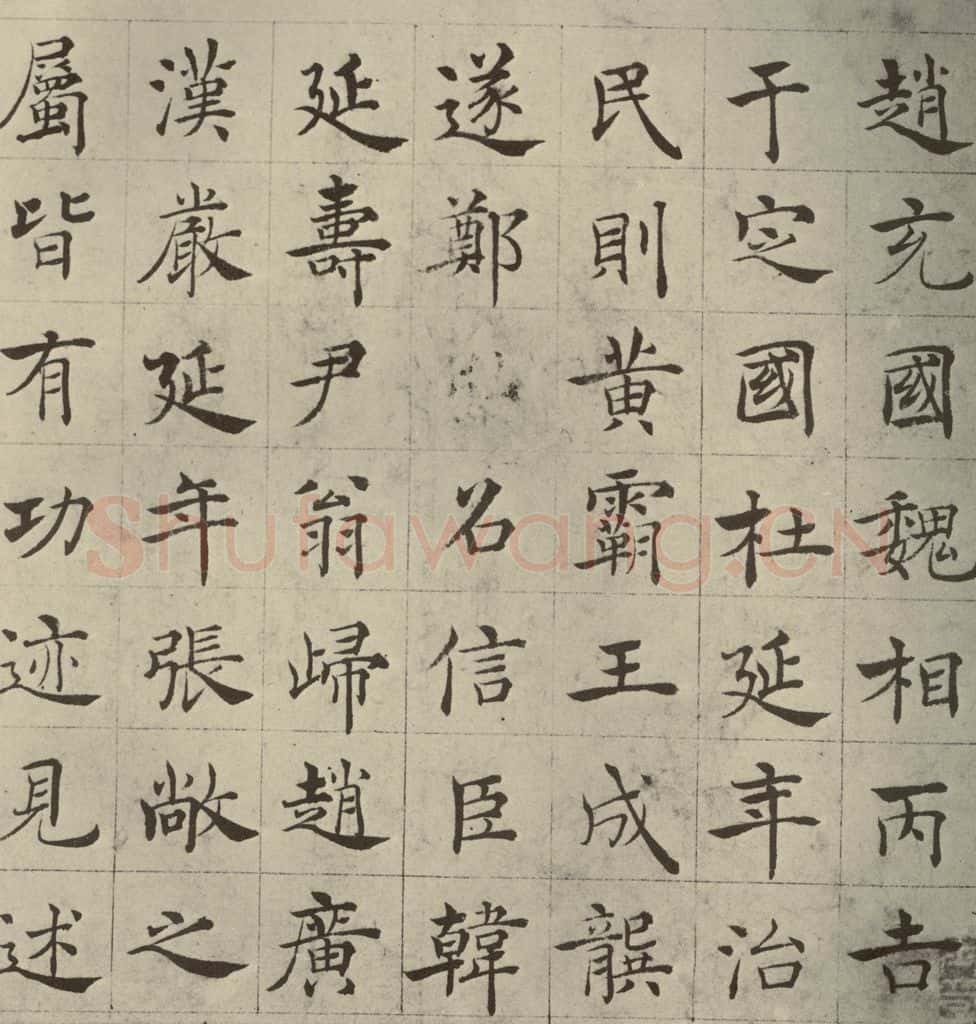 趙充國魏相丙吉
于定國杜延年治
民則黃霸王成龔
遂鄭召信臣韓
延壽尹翁歸趙廣
漢嚴延年張敞之
屬皆有功迹見述
Shufawang.CN